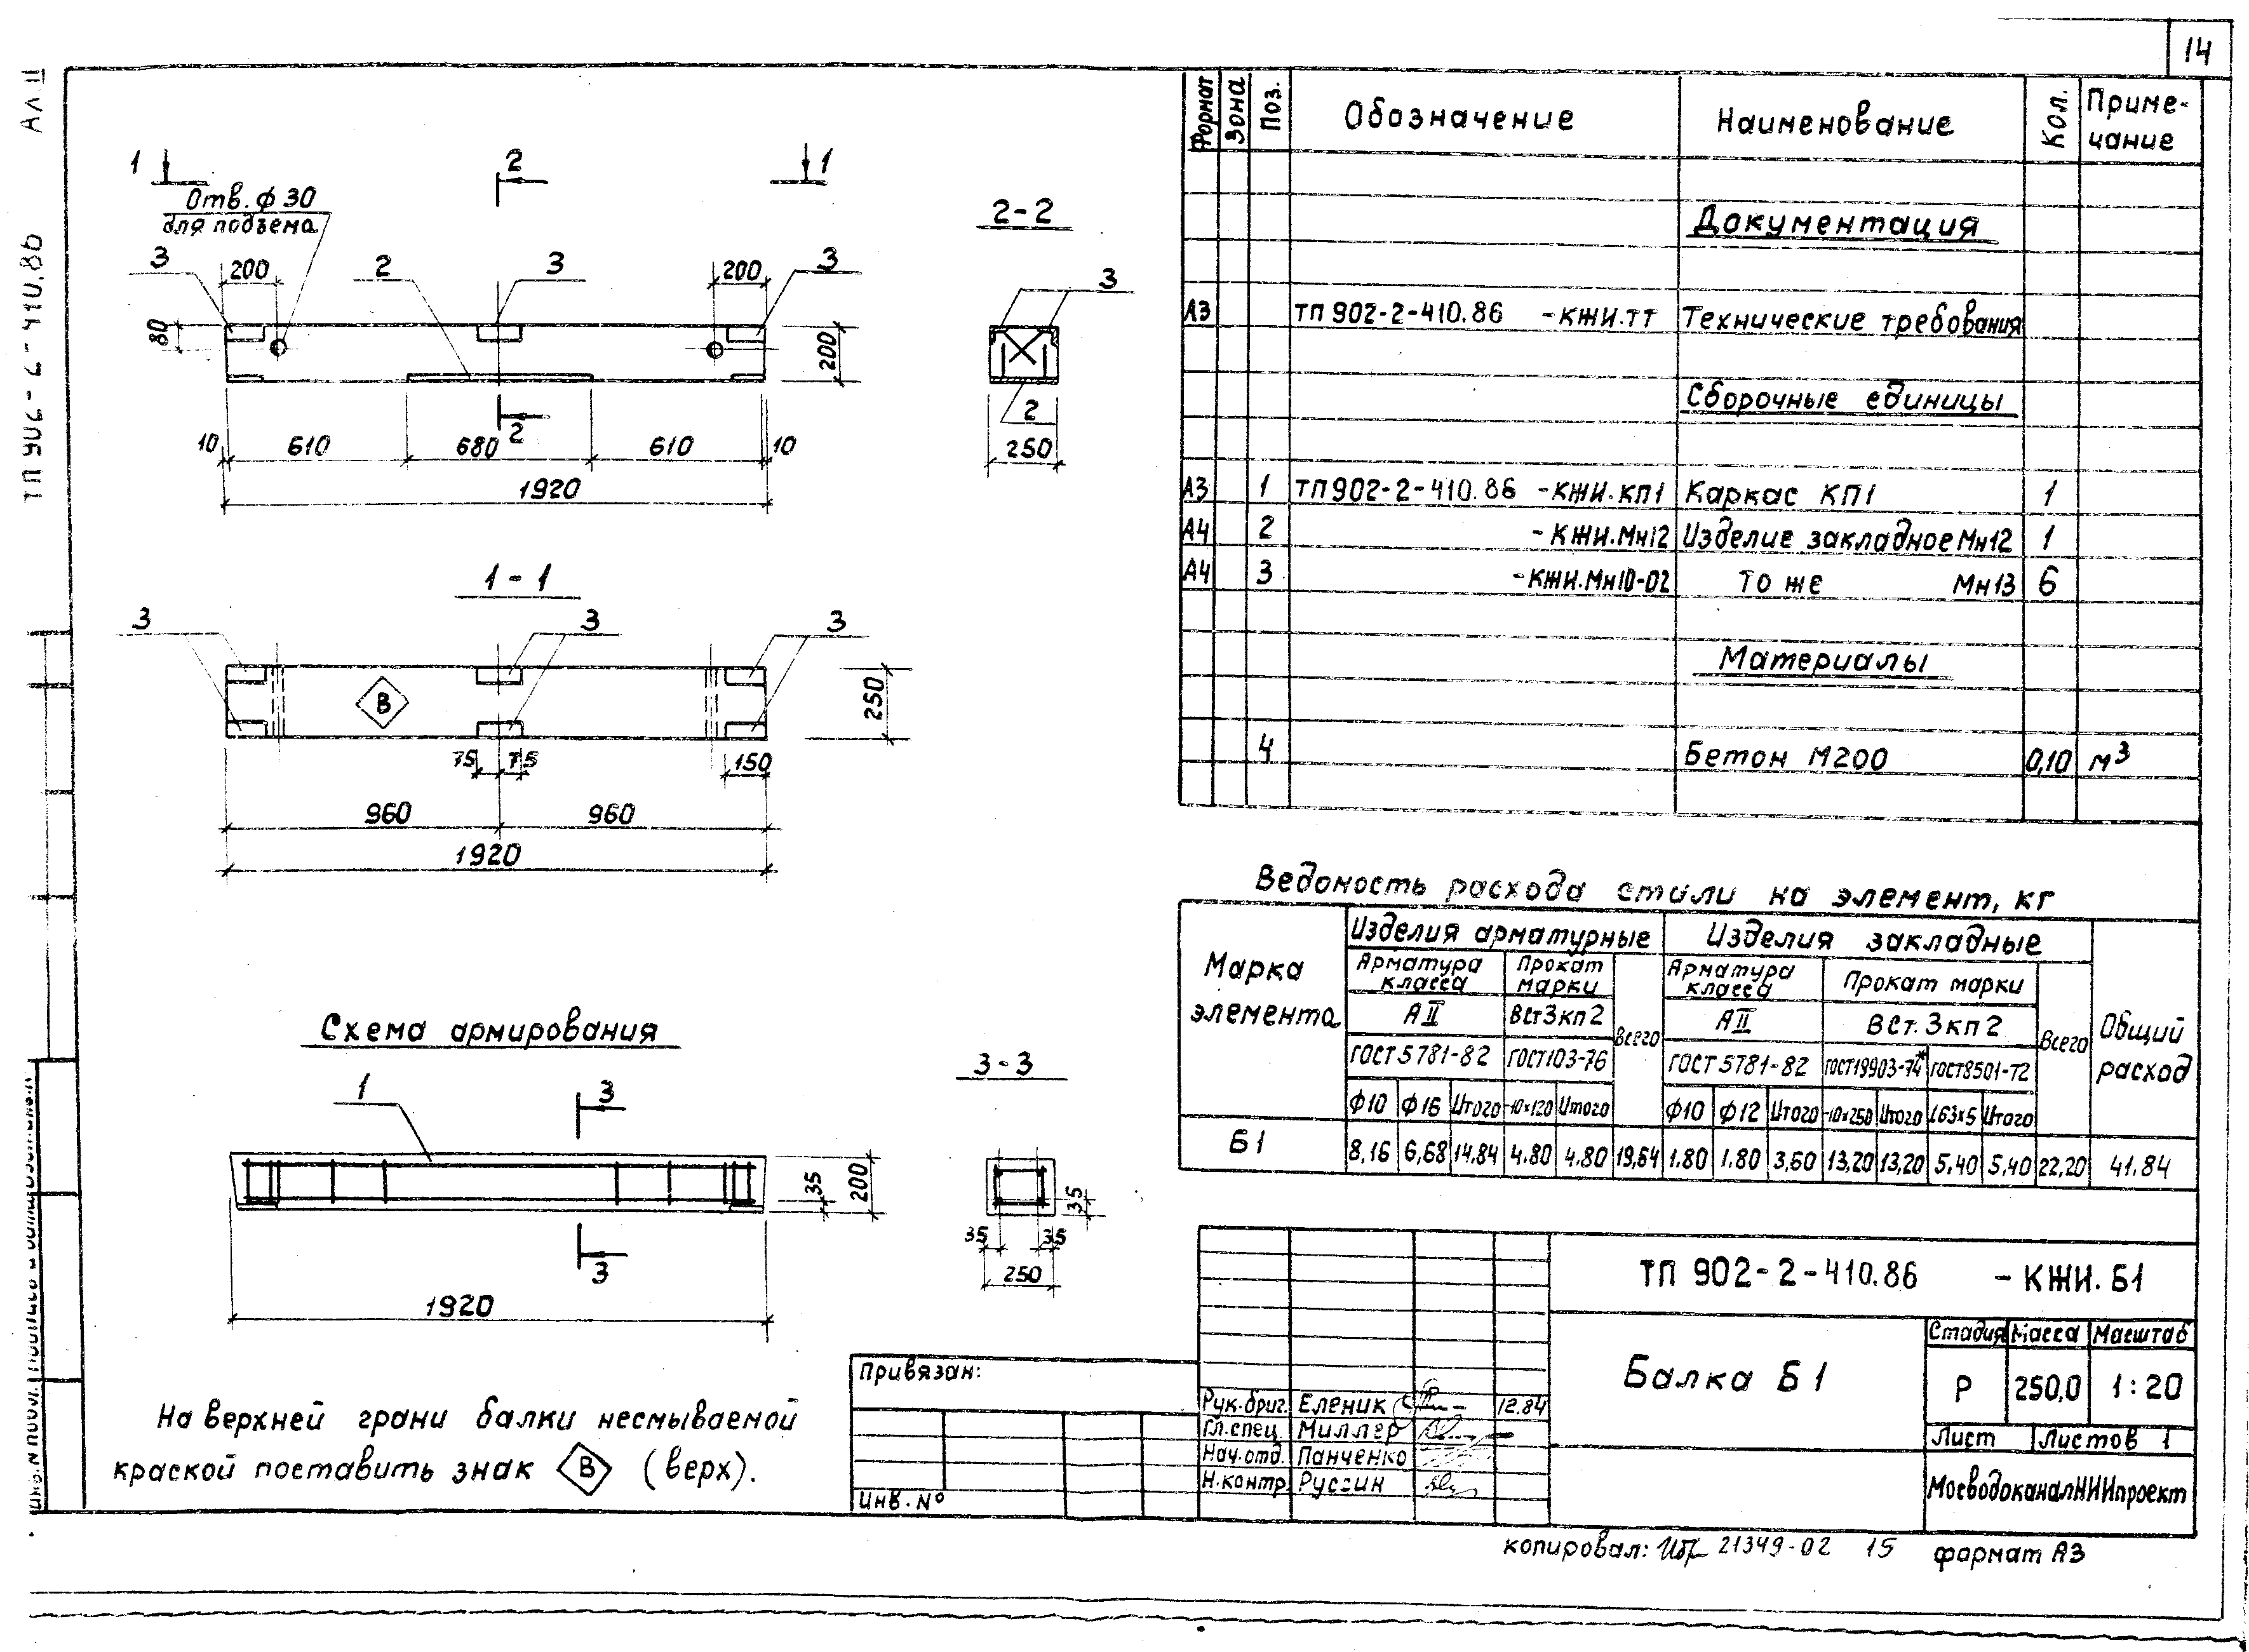 14
Ал. II
ТП 902-2-410.86
1
2
1
Отв. ф 30
для подъема
3
200
2
3
200
3
80
200
10
610
680
2
610
10
1920
2-2
3
2
250
1-1
3
3
3
В
250
75
75
150
960
960
1920
Схема армирования
1
3
35
200
3
1920
3-3
35
35
35
250
На верхней грани балки несмываемой
краской поставить знак В (верх).
Формат
Зона
Поз.
Обозначение
Наименование
Кол.
Приме-
чание
Документация
А3 ТП 902-2-410.86 -КЖИ.ТТ Технические требования
Сборочные единицы
А3 1 ТП 902-2-410.86 -КЖИ.КП1 Каркас КП1 1
А4 2 -КЖИ.Мн12 Изделие закладное Мн12 1
А4 3 -КЖИ.Мн10-02 То же Мн13 6
Материалы
4 Бетон М200 0,10 м3
Ведомость расхода стали на элемент, кг
Марка
элемента
Изделия арматурные
Изделия закладные
Общий
расход
Арматура
класса
Прокат
марки
Всего
Арматура
класса
Прокат марки
Всего
А II
ВСт3кп2
А II
ВСт.3кп2
ГОСТ 5781-82 ГОСТ103-76 ГОСТ 5781-82 ГОСТ19903-74* ГОСТ8501-72
Ф10 Ф16 Итого -10×120 Итого Ф10 Ф12 Итого -10×250 Итого L63×5 Итого
Б1 8,16 6,68 14.84 4.80 4.80 19,64 1.80 1.80 3,60 13,20 13,20 5.40 5,40 22,20 41.84
ТП 902-2-410.86 -КЖИ.Б1
Балка Б1
Стадия Масса Масштаб
Р 250,0 1:20
Лист Листов 1
МосводоканалНИИпроект
Привязан:
Инв. №
Рук.бриг. Еленик 12.84
Гл.спец. Миллер
Нач.отд. Панченко
Н.контр. Руссин
копировал: 21349-02 15 формат А3